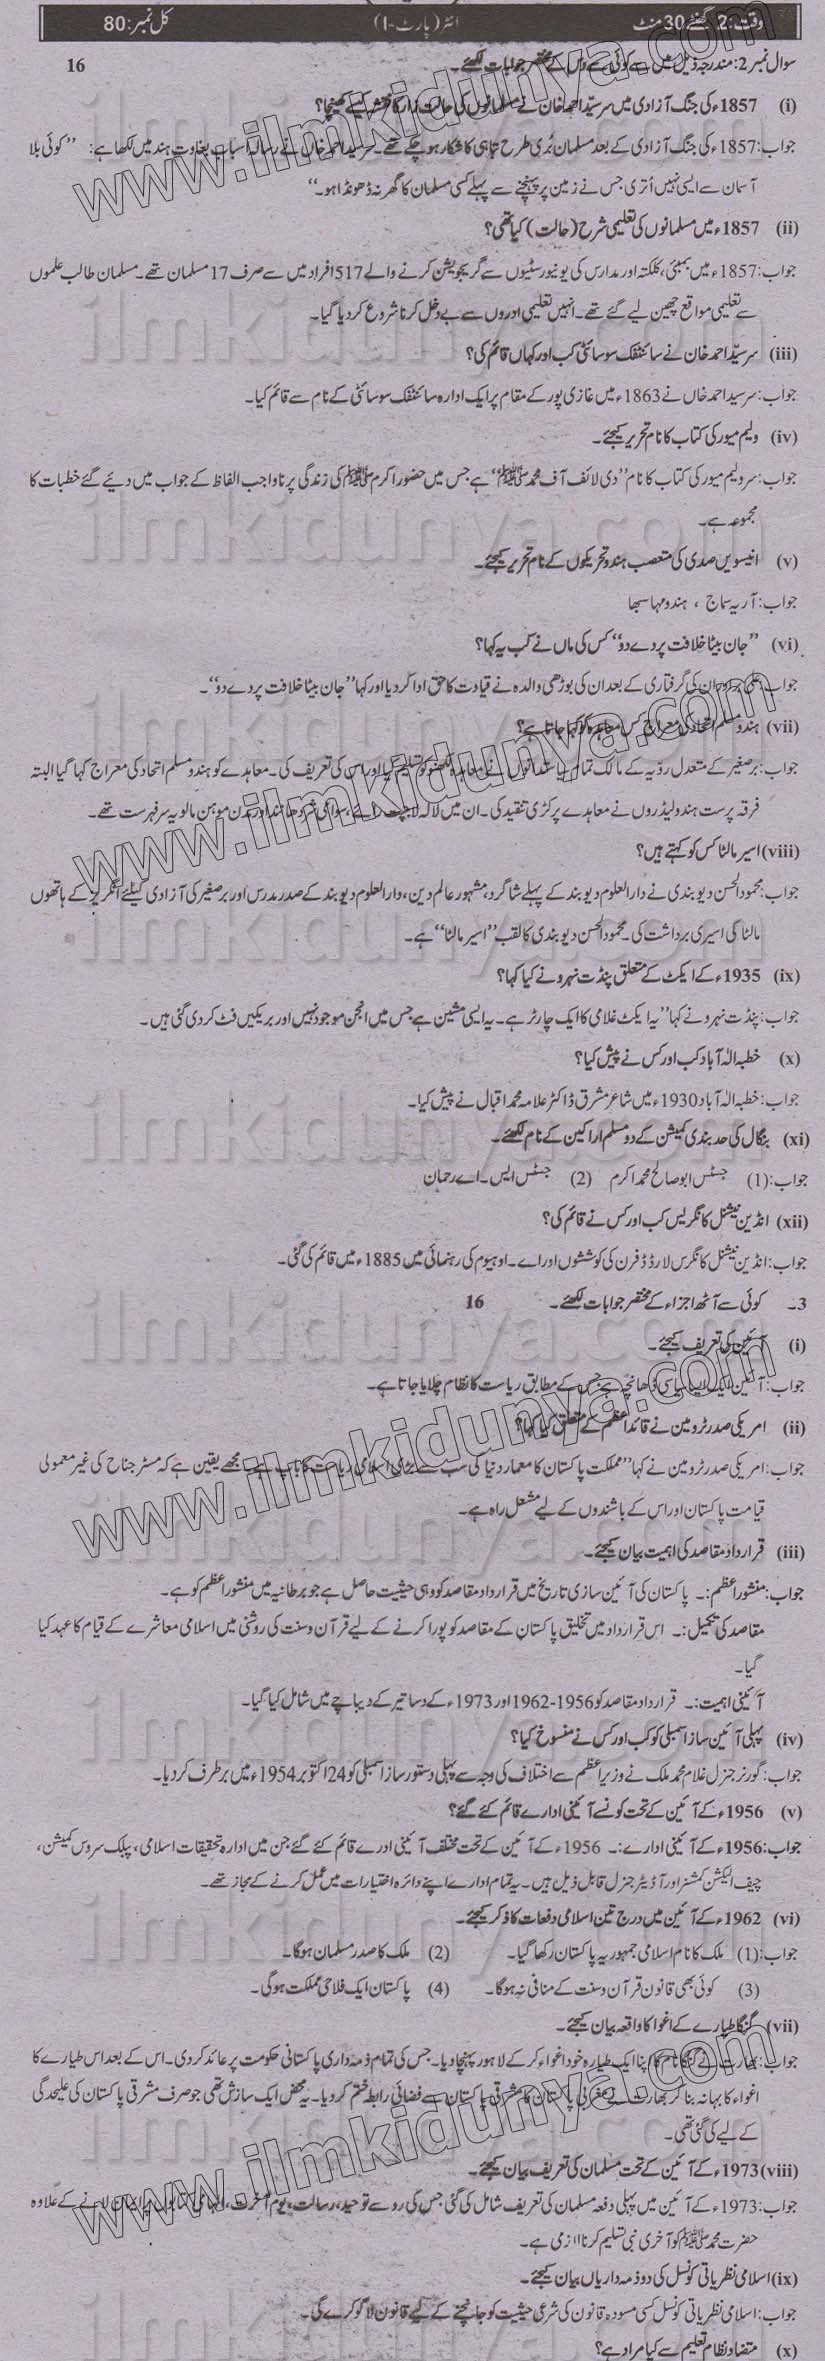 وقت: 2 گھنٹے 30 منٹ انٹر (پارٹ-I) کل نمبر: 80
سوال نمبر 2: مندرجہ ذیل میں سے کوئی سے کے مختصر جوابات لکھئے۔ 16
(i) 1857ء کی جنگ آزادی میں سرسید احمد خان نے مسلمانوں کی حالت زار کا نقشہ کیسے کھینچا؟
جواب: 1857ء کی جنگ آزادی کے بعد مسلمان بُری طرح تباہی کا شکار ہو چکے تھے۔ سرسید احمد خاں نے رسالہ اسباب بغاوت ہند میں لکھا ہے: ’’کوئی بلا
آسمان سے ایسی نہیں اُتری جس نے زمین پر پہنچنے سے پہلے کسی مسلمان کا گھر نہ ڈھونڈا ہو۔‘‘
(ii) 1857ء میں مسلمانوں کی تعلیمی شرح (حالت) کیا تھی؟
جواب: 1857ء میں بمبئی، کلکتہ اور مدارس کی یونیورسٹیوں سے گریجویشن کرنے والے 517 افراد میں سے صرف 17 مسلمان تھے۔ مسلمان طالب علموں
سے تعلیمی مواقع چھین لیے گئے تھے۔ انہیں تعلیمی اداروں سے بے دخل کرنا شروع کر دیا گیا۔
(iii) سرسید احمد خان نے سائنٹفک سوسائٹی کب اور کہاں قائم کی؟
جواب: سرسید احمد خاں نے 1863ء میں غازی پور کے مقام پر ایک ادارہ سائنٹفک سوسائٹی کے نام سے قائم کیا۔
(iv) ولیم میور کی کتاب کا نام تحریر کیجئے۔
جواب: سر ولیم میور کی کتاب کا نام ’’دی لائف آف محمدﷺ‘‘ ہے جس میں حضور اکرمﷺ کی زندگی پر ناواجب الفاظ کے جواب میں دیئے گئے خطبات کا
مجموعہ ہے۔
(v) انیسویں صدی کی متعصب ہندو تحریکوں کے نام تحریر کیجئے۔
جواب: آریہ سماج ، ہندو مہا سبھا
(vi) ’’جان بیٹا خلافت پر دے دو‘‘ کس کی ماں نے کب یہ کہا؟
جواب: علی برادران کی گرفتاری کے بعد ان کی بوڑھی والدہ نے قیادت کا حق ادا کر دیا اور کہا ’’جان بیٹا خلافت پر دے دو‘‘۔
(vii) ہندو مسلم اتحاد کی معراج کس معاہدہ کو کہا جاتا ہے؟
جواب: برصغیر کے معتدل رویہ کے مالک تمام سیاستدانوں نے معاہدہ لکھنؤ کو تسلیم کیا اور اس کی تعریف کی۔ معاہدے کو ہندو مسلم اتحاد کی معراج کہا گیا البتہ
فرقہ پرست ہندو لیڈروں نے معاہدے پر کڑی تنقید کی۔ ان میں لالہ لاجپت رائے، سوامی شردھا نند اور مدن موہن مالویہ سرفہرست تھے۔
(viii) اسیر مالٹا کس کو کہتے ہیں؟
جواب: محمود الحسن دیوبندی نے دارالعلوم دیوبند کے پہلے شاگرد، مشہور عالم دین، دارالعلوم دیوبند کے صدر مدرس اور برصغیر کی آزادی کیلئے انگریز کے ہاتھوں
مالٹا کی اسیری برداشت کی۔ محمود الحسن دیوبندی کا لقب ’’اسیر مالٹا‘‘ ہے۔
(ix) 1935ء کے ایکٹ کے متعلق پنڈت نہرو نے کیا کہا؟
جواب: پنڈت نہرو نے کہا ’’یہ ایکٹ غلامی کا ایک چارٹر ہے۔ یہ ایسی مشین ہے جس میں انجن موجود نہیں اور بریکیں فٹ کر دی گئی ہیں۔
(x) خطبہ الٰہ آباد کب اور کس نے پیش کیا؟
جواب: خطبہ الٰہ آباد 1930ء میں شاعر مشرق ڈاکٹر علامہ محمد اقبال نے پیش کیا۔
(xi) بنگال کی حد بندی کمیشن کے دو مسلم اراکین کے نام لکھئے۔
جواب: (1) جسٹس ابو صالح محمد اکرم (2) جسٹس ایس۔ اے رحمان
(xii) انڈین نیشنل کانگریس کب اور کس نے قائم کی؟
جواب: انڈین نیشنل کانگرس لارڈ ڈفرن کی کوششوں اور اے۔ او ہیوم کی رہنمائی میں 1885ء میں قائم کی گئی۔
3۔ کوئی سے آٹھ اجزاء کے مختصر جوابات لکھئے۔ 16
(i) آئین کی تعریف کیجئے۔
جواب: آئین ایک ایسا سیاسی ڈھانچہ ہے جس کے مطابق ریاست کا نظام چلایا جاتا ہے۔
(ii) امریکی صدر ٹرومین نے قائداعظم کے متعلق کیا کہا؟
جواب: امریکی صدر ٹرومین نے کہا ’’مملکت پاکستان کا معمار دنیا کی سب سے بڑی اسلامی ریاست کا باپ ہے۔ مجھے یقین ہے کہ مسٹر جناح کی غیر معمولی
قیامت پاکستان اور اس کے باشندوں کے لیے مشعل راہ ہے۔
(iii) قرارداد مقاصد کی اہمیت بیان کیجئے۔
جواب: منشور اعظم:۔ پاکستان کی آئین سازی تاریخ میں قرارداد مقاصد کو وہی حیثیت حاصل ہے جو برطانیہ میں منشور اعظم کو ہے۔
مقاصد کی تکمیل:۔ اس قرارداد میں تخلیق پاکستان کے مقاصد کو پورا کرنے کے لیے قرآن و سنت کی روشنی میں اسلامی معاشرے کے قیام کا عہد کیا
گیا۔
آئینی اہمیت:۔ قرارداد مقاصد کو 1956-1962 اور 1973ء کے دساتیر کے دیباچے میں شامل کیا گیا۔
(iv) پہلی آئین ساز اسمبلی کو کب اور کس نے منسوخ کیا؟
جواب: گورنر جنرل غلام محمد ملک نے وزیراعظم سے اختلاف کی وجہ سے پہلی دستور ساز اسمبلی کو 24 اکتوبر 1954ء میں برطرف کر دیا۔
(v) 1956ء کے آئین کے تحت کونسے آئینی ادارے قائم کئے گئے؟
جواب: 1956ء کے آئینی ادارے:۔ 1956ء کے آئین کے تحت مختلف آئینی ادرے قائم کئے گئے جن میں ادارہ تحقیقات اسلامی، پبلک سروس کمیشن،
چیف الیکشن کمشنر اور آڈیٹر جنرل قابل ذیل ہیں۔ یہ تمام ادارے اپنے دائرہ اختیارات میں عمل کرنے کے مجاز تھے۔
(vi) 1962ء کے آئین میں درج تین اسلامی دفعات کا ذکر کیجئے۔
جواب: (1) ملک کا نام اسلامی جمہوریہ پاکستان رکھا گیا۔ (2) ملک کا صدر مسلمان ہوگا۔
(3) کوئی بھی قانون قرآن و سنت کے منافی نہ ہوگا۔ (4) پاکستان ایک فلاحی مملکت ہوگی۔
(vii) گنگا طیارے کے اغوا کا واقعہ بیان کیجئے۔
جواب: بھارت نے گنگا نام کا اپنا ایک طیارہ خود اغواء کر کے لاہور پہنچا دیا۔ جس کی تمام ذمہ داری پاکستانی حکومت پر عائد کر دی۔ اس کے بعد اس طیارے کا
اغواء کا بہانہ بنا کر بھارت نے مغربی پاکستان کا مشرقی پاکستان سے فضائی رابطہ ختم کر دیا۔ یہ محض ایک سازش تھی جو صرف مشرقی پاکستان کی علیحدگی
کے لیے کی گئی تھی۔
(viii) 1973ء کے آئین کے تحت مسلمان کی تعریف بیان کیجئے۔
جواب: 1973ء کے آئین میں پہلی دفعہ مسلمان کی تعریف شامل کی گئی جس کی رو سے توحید، رسالت، یوم آخرت، الہامی کتابوں پر ایمان لانے کے علاوہ
حضرت محمدﷺ کو آخری نبی تسلیم کرنا لازمی ہے۔
(ix) اسلامی نظریاتی کونسل کی دو ذمہ داریاں بیان کیجئے۔
جواب: اسلامی نظریاتی کونسل کسی مسودہ قانون کی شرعی حیثیت کو جانچنے کے لیے قانون لاگو کرے گی۔
(x) متضاد نظام تعلیم سے کیا مراد ہے؟
www.ilmkidunya.com